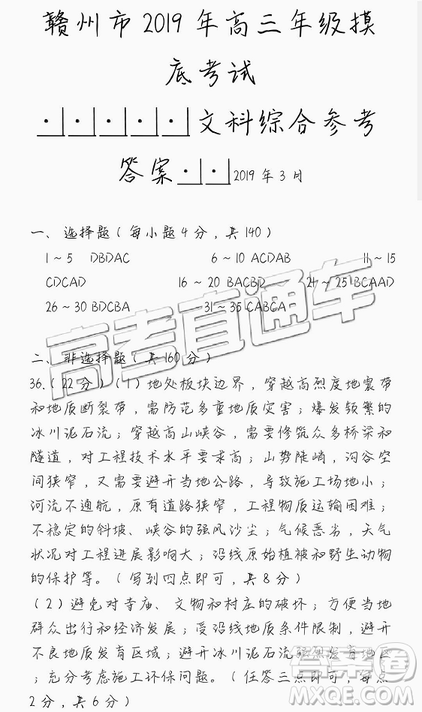 赣州市2019年高三年级摸
底考试
文科综合参考
答案 2019年3月
一、选择题(每小题4分,共140)
1~5 DBDAC 6~10 ACDAB 11~15
CDCAD 16~20 BACBD 21~25 BCAAD
26~30 BDCBA 31~35 CABCA
二、非选择题(共160分)
36.(22分)(1)地处板块边界,穿越高烈度地震带
和地质断裂带,需防范多重地质灾害;爆发频繁的
冰川泥石流;穿越高山峡谷,需要修筑众多桥梁和
隧道,对工程技术水平要求高;山势陡峭,沟谷空
间狭窄,又需要避开当地公路,导致施工场地小;
河流不通航,原有道路狭窄,工程物质运输困难;
不稳定的斜坡、峡谷的强风沙尘;气候恶劣,天气
状况对工程进展影响大;沿线原始植被和野生动物
的保护等。(写到四点即可,共8分)
(2)避免对寺庙、文物和村庄的破坏;方便当地
群众出行和经济发展;受沿线地质条件限制,避开
不良地质发育区域;避开冰川泥石流易发育地区
;充分考虑施工环保问题。(任答三点即可,每点
2分,共6分)
高考直通车
答案圈
MXQE.COM